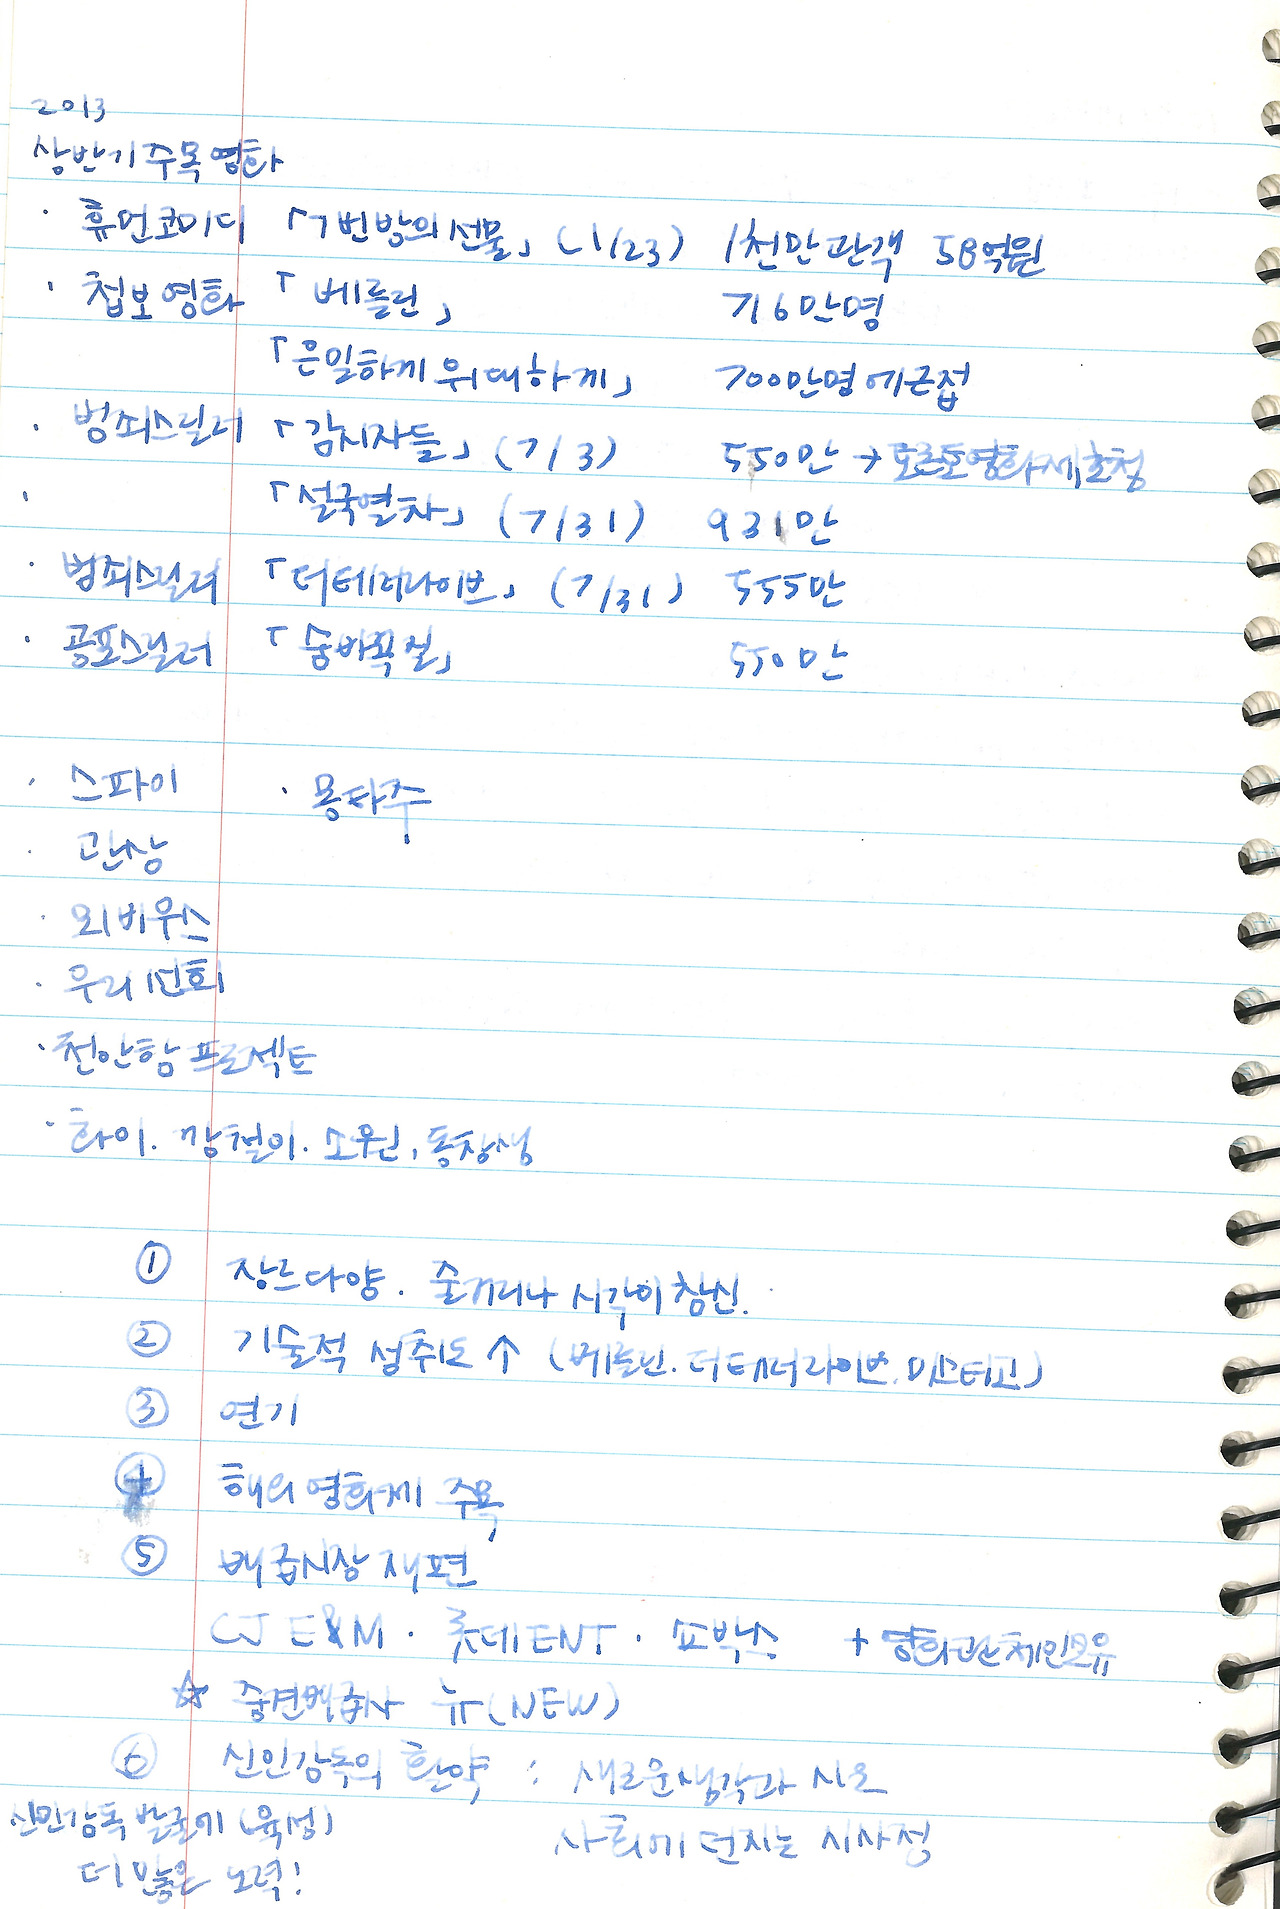 2013
상반기 주목 영화
· 휴먼코미디 「7번방의 선물」 (1/23) 1천만 관객 58억원
· 첩보영화 「베를린」 716만명
「은밀하게 위대하게」 700만명에 근접
· 범죄스릴러 「감시자들」 (7/3) 550만 → 토론토영화제 초청
· 「설국열차」 (7/31) 931만
· 범죄스릴러 「더테러라이브」 (7/31) 555만
· 공포스릴러 「숨바꼭질」 550만
· 스파이 · 몽타주
· 관상
· 뫼비우스
· 우리선희
· 천안함 프로젝트
· 화이. 깡철이. 소원. 동창생
① 장르다양. 줄거리나 시각이 참신.
② 기술적 성취도 ↑ (베를린. 더테러라이브. 미스터고)
③ 연기
④ 해외영화제 주목
⑤ 배급시장 재편
CJ E&M · 롯데ENT · 쇼박스 + 영화관체인보유
☆ 중견배급사 뉴(NEW)
⑥ 신인감독의 활약 : 새로운생각과 시도
신인감독 발굴에 (육성) 사회에 던지는 시사점
더많은 노력!